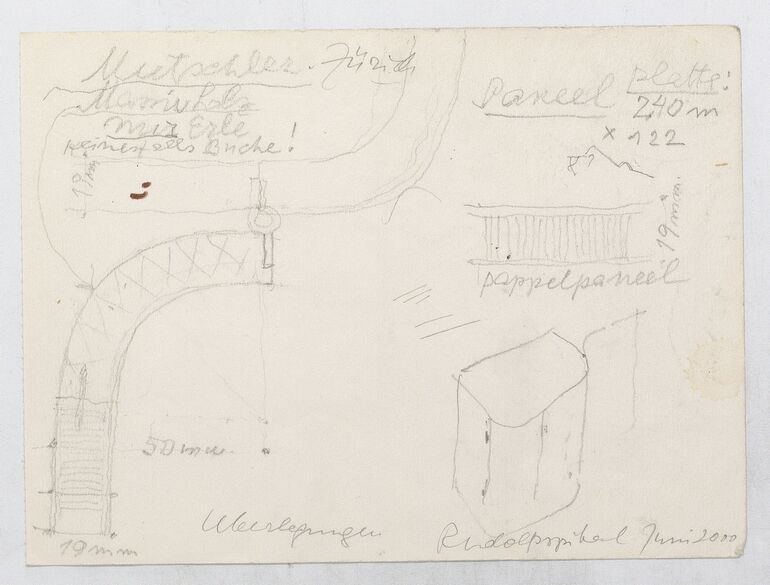 Muetschler. Zürich
Massivholz
nur Erle
keinesfalls Buche!
19 mm
Paneel
Platte:
2,40 m
x 122
19 mm.
pappelpaneel
50 mm.
19 mm
Überlegungen
Rudolfspital Juni 2000